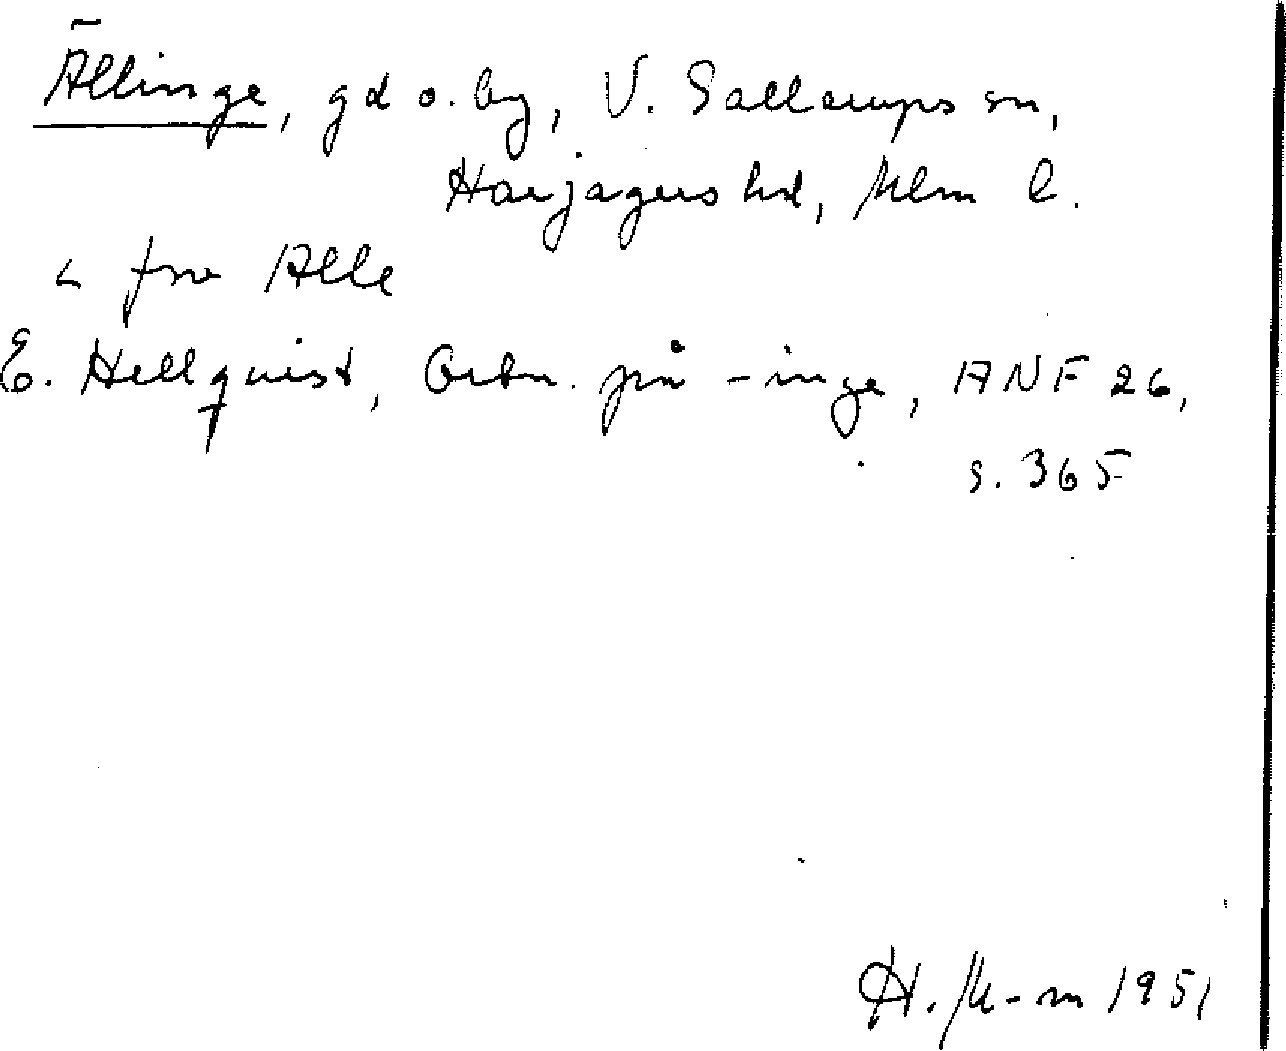 Ällinge, gd o. by, V. Sallerups sn,
Harjagers hd, Mlm l.
< fno Alle
E. Hellquist, Ortn. på -inge, ANF 26,
s. 365
H. M-m 1951